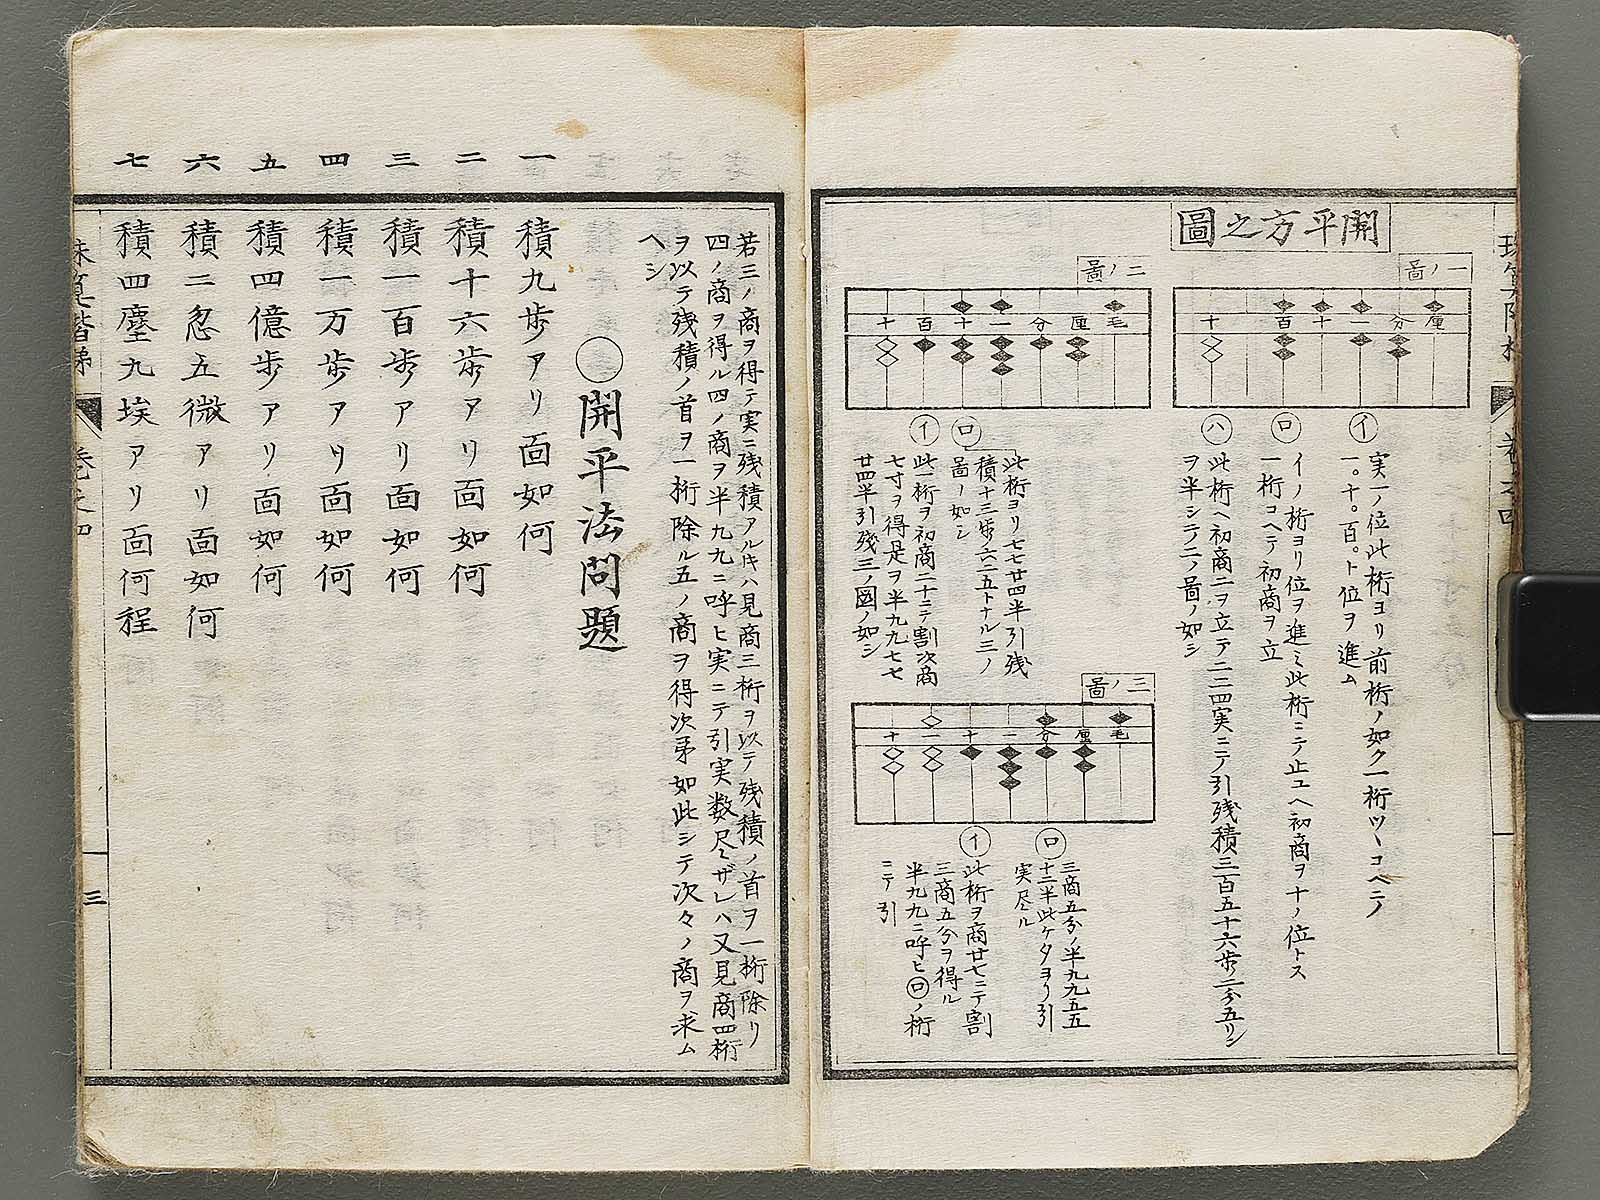 開平方之圖
一ノ啚
十 百 十 一 分 厘
㋑
実一ノ位此桁ヨリ前桁ノ如ク一桁ツヽコヘテ
一。十。百。ト位ヲ進ム
㋺
イノ桁ヨリ位ヲ進ミ此桁ニテ止ユヘ初商ヲ十ノ位トス
一桁コヘテ初商ヲ立
㋩
此桁ヘ初商二ヲ立テ二二四実ニテ引残積三百五十六歩二分五リン
ヲ半シテ二ノ啚ノ如シ
二ノ啚
十 百 十 一 分 厘 毛
㋺
此桁ヨリ七七廿四半引残
積十三歩六二五トナル三ノ
啚ノ如シ
㋑
此一桁ヲ初商二十ニテ割次商
七寸ヲ得是ヲ半九九七七
廿四半引残三ノ圖ノ如シ
三ノ啚
十 一 十 一 分 厘 毛
㋺
三商五分ノ半九九五五
十二半此ケタヨリ引
実尽ル
㋑
此桁ヲ商廿七ニテ割
三商五分ヲ得ル
半九九ニ呼ヒ㋺ノ桁
ニテ引
若三ノ商ヲ得テ実ニ残積アルトキハ見商三桁ヲ以テ残積ノ首ヲ一桁除リ
四ノ商ヲ得ル四ノ商ヲ半九九ニ呼ヒ実ニテ引実数尽ザレハ又見商四桁
ヲ以テ残積ノ首ヲ一桁除ル五ノ商ヲ得次第如此シテ次々ノ商ヲ求ム
ヘシ
〇開平法問題
一 積九歩アリ面如何
二 積十六歩アリ面如何
三 積一百歩アリ面如何
四 積一万歩アリ面如何
五 積四億歩アリ面如何
六 積二忽五微アリ面如何
七 積四塵九埃アリ面何程
珠算階梯 巻之四 三